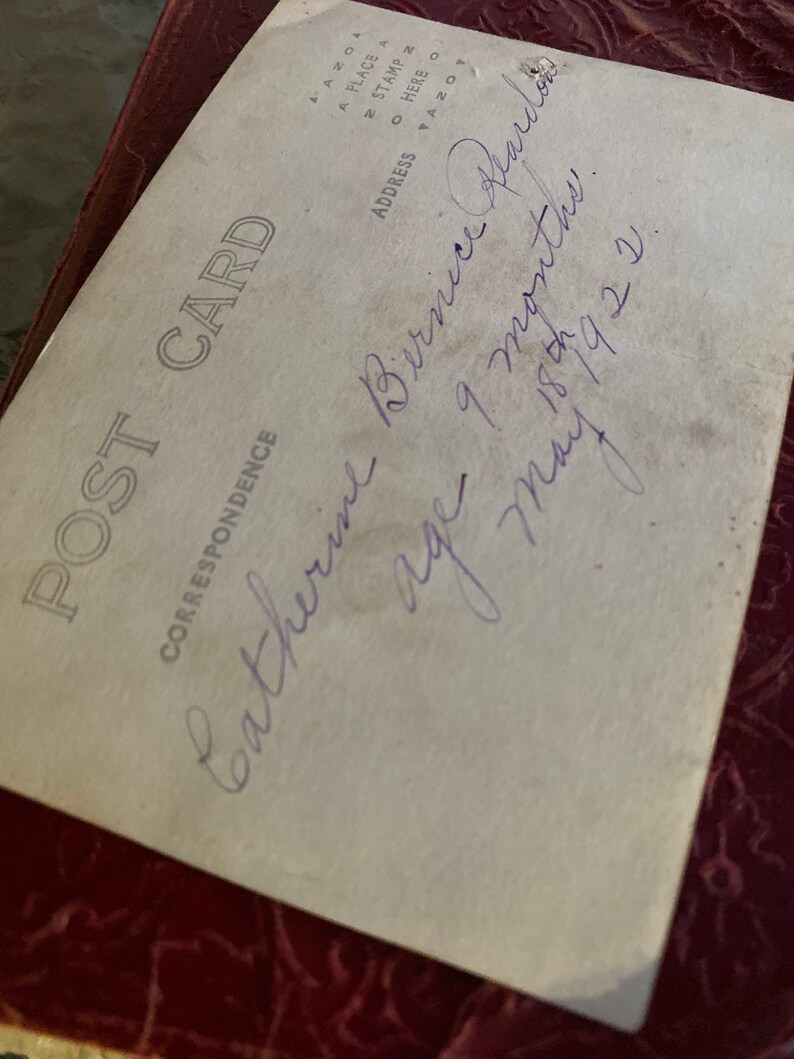 POST CARD
CORRESPONDENCE
ADDRESS
AZO
PLACE
STAMP
HERE
AZO
Catherine Bernice Reardon
age 9 months.
May 18th 1922.